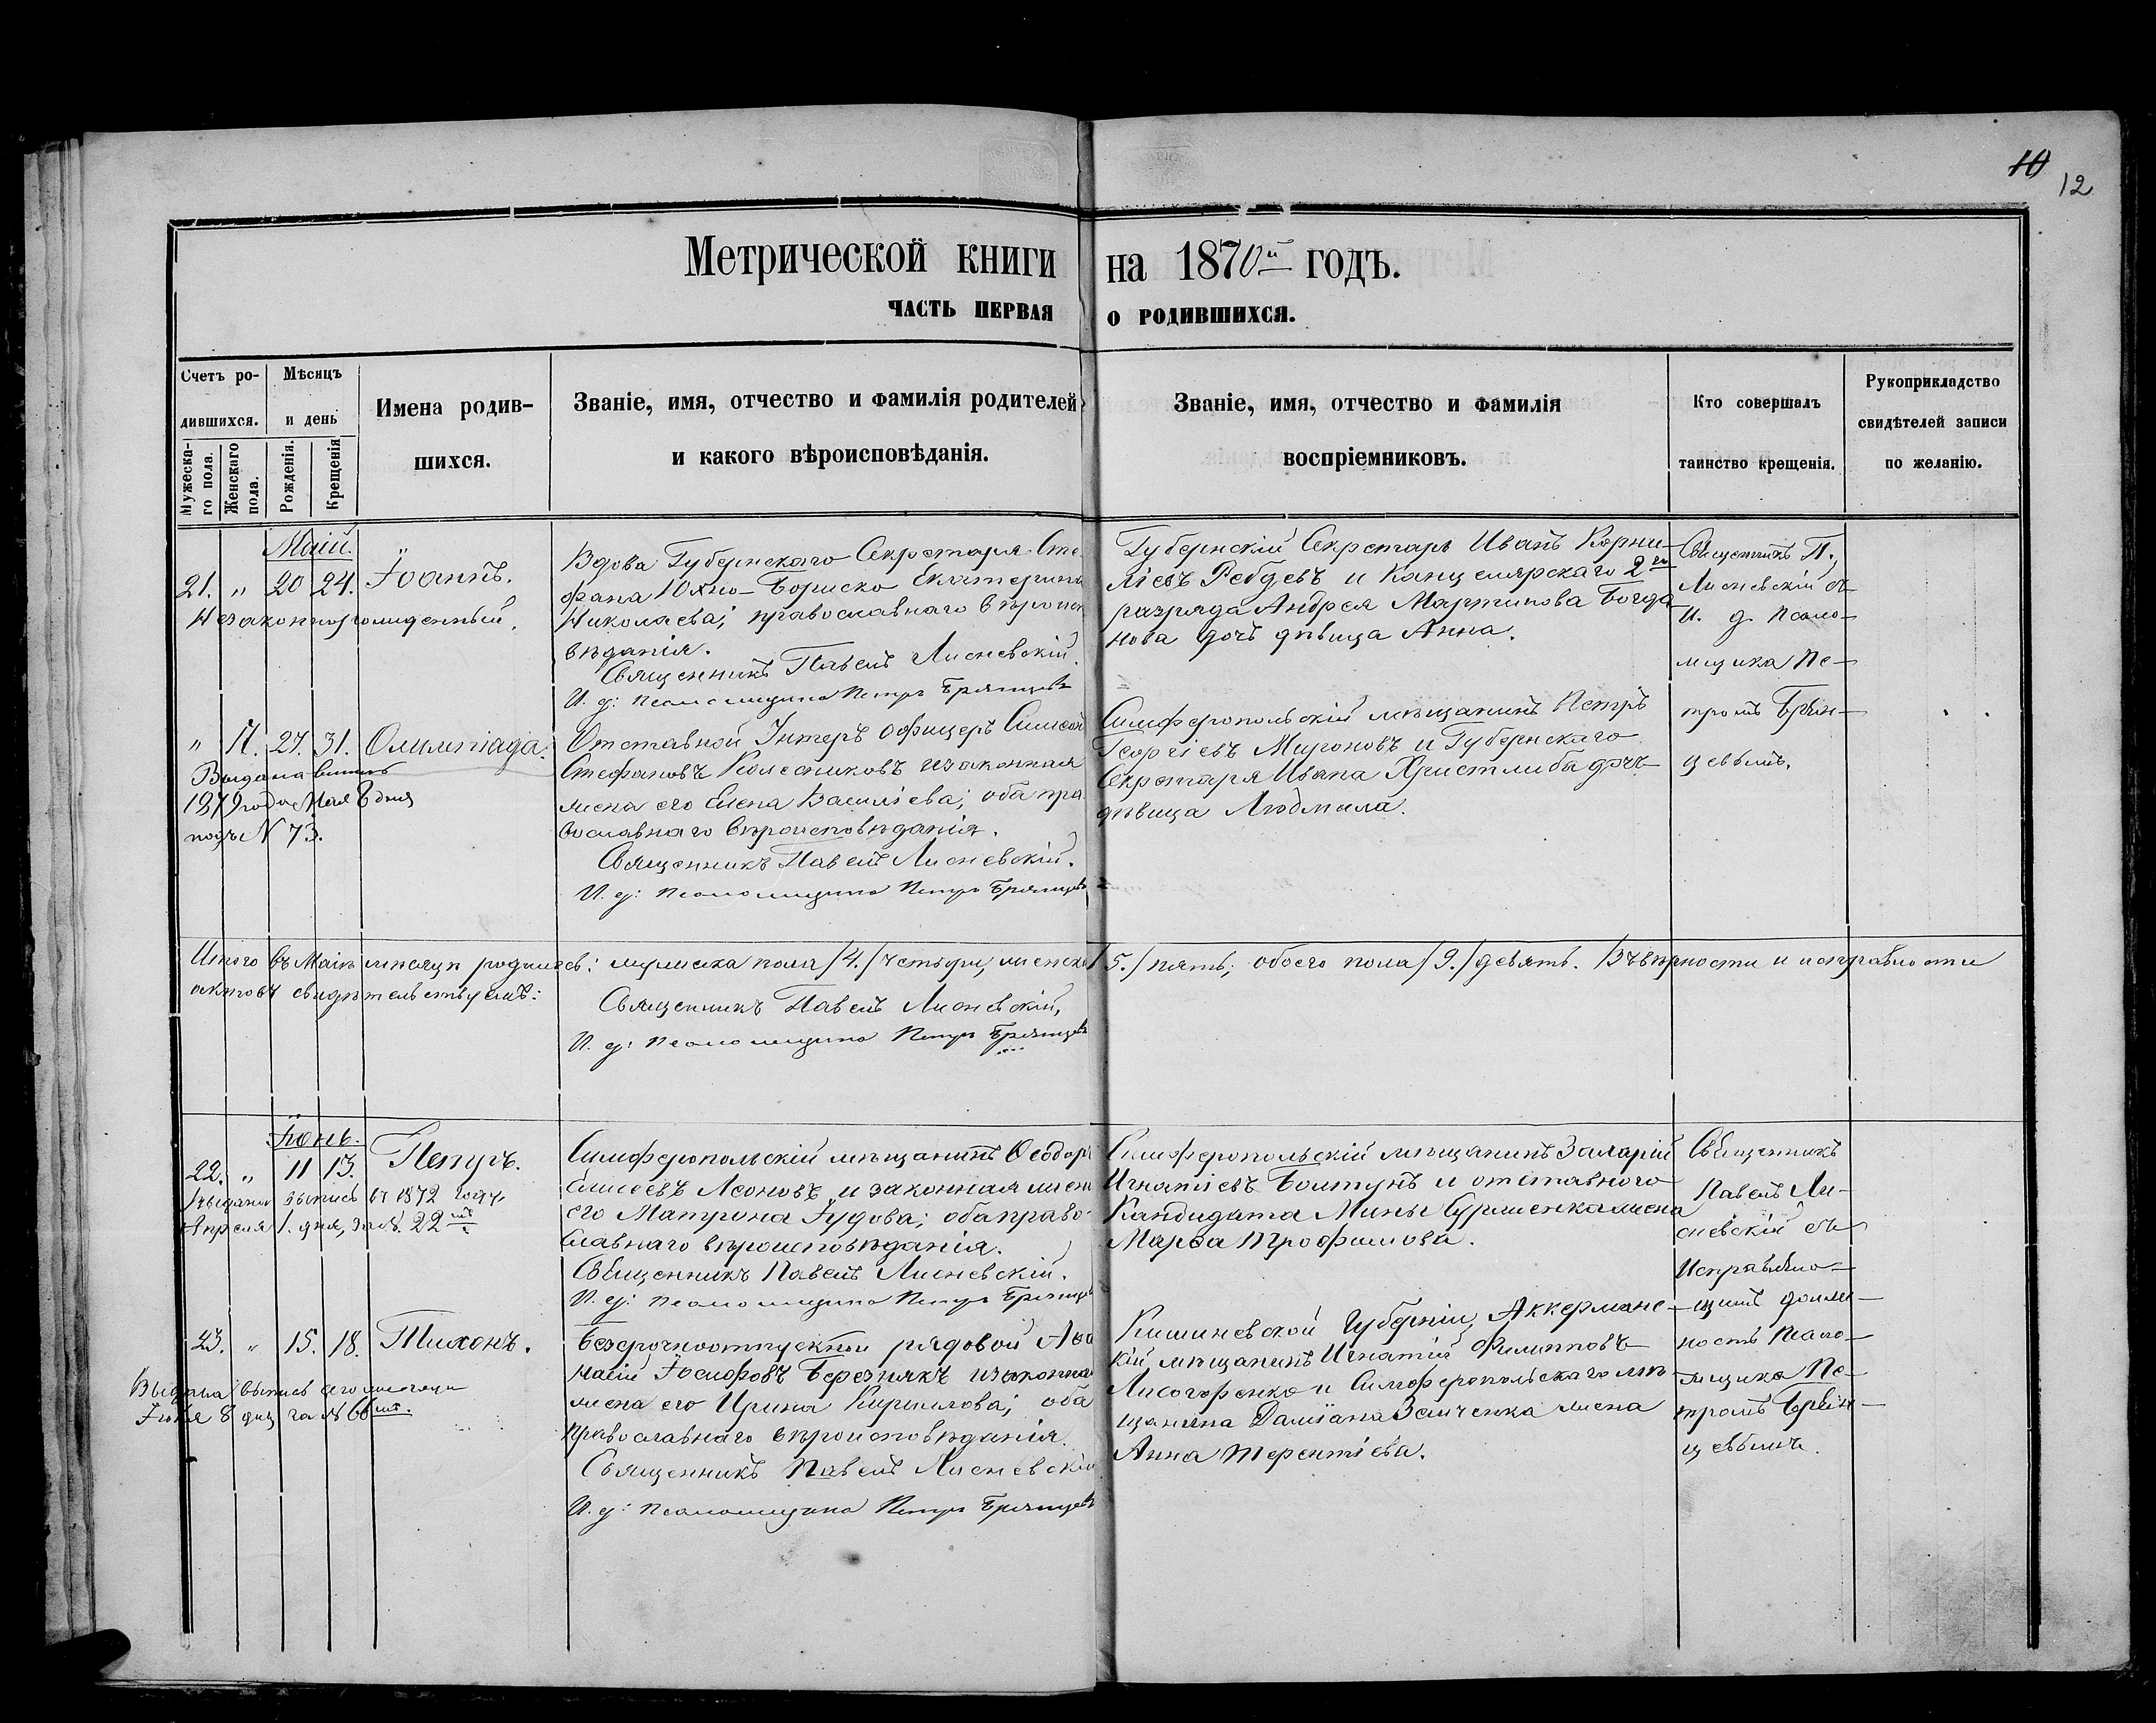 10
12
Метрической книги на 1870й годъ.
ЧАСТЬ ПЕРВАЯ О РОДИВШИХСЯ.
Счетъ ро-
дившихся.
Мужеска-
го пола.
Женскаго
пола.
Мѣсяцъ
и день
Рожденія.
Крещенія
Имена родив-
шихся.
Званіе, имя, отчество и фамилія родителей
и какого вѣроисповѣданія.
Званіе, имя, отчество и фамилія
воспріемниковъ.
Кто совершалъ
таинство крещенія.
Рукоприкладство
свидѣтелей записи
по желанію.
Маій.
21. " 20 24. Іоаннъ.
Незаконнорожденный.
Вдова Губернскаго Секретаря Сте
фана Юхно-Бориско Екатерина
Николаева; православнаго вѣроиспо
вѣданія.
Священникъ Павелъ Лисневскій.
И. д: псаломщика Петръ Брянцевъ
Губернскій Секретарь Иванъ Корни-
ліевъ Ребдевъ и Канцелярскаго 2го
разряда Андрея Мартинова Богда
нова дочь дѣвица Анна.
Священникъ П.
Лисневскій съ
И. д. псало-
мщика Пе-
тромъ Брян-
цевымъ.
" 17. 27. 31. Олимпіада.
Выдана выпись
1879 года Мая 8 дня
подъ N 73.
Отставной Унтеръ офицеръ Симеон
Стефановъ Колесниковъ и законная
жена его Елена Василіева; оба пра
вославнаго вѣроисповѣданія.
Священникъ Павелъ Лисневскій.
И. д: псаломщика Петръ Брянцевъ
Симферопольскій мѣщанинъ Петръ
Георгіевъ Мироновъ и Губернскаго
Секретаря Ивана Христлиба дочь
дѣвица Людмила.
Итого въ Маіѣ мѣсяцѣ родилось: мужеска пола /4./ четыри, женска /5./ пять, обоего пола /9./ девять. Въ вѣрности и исправности
актовъ свидѣтельствуемъ:
Священникъ Павелъ Лисневскій,
И. д: псаломщика Петръ Брянцевъ
Іюнь.
22. " 11 13. Петръ.
Выдана выпись въ 1872 году
Апреля 1. дня, за N. 22мъ
Симферопольскій мѣщанинъ Ѳеодоръ
Елисеевъ Леоновъ и законная жена
его Матрона Іудова; оба право-
славнаго вѣроисповѣданія.
Священникъ Павелъ Лисневскій.
И. д: псаломщика Петръ Брянцевъ
Симферопольскій мѣщанинъ
Игнатіевъ Болтунъ и отставного
Кандидата Мины жена
Марѳа Трофимова.
Священникъ
Павелъ Ли-
сневскій съ
Исправляю-
щимъ долж-
ность псало-
мщика Пе-
тромъ Брян-
цевымъ.
23. " 15. 18. Тихонъ.
Выдана выпись сего мѣсяца
8 дня за N 66мъ.
Безсрочноотпускной рядовой Аѳа
насій Іосифовъ Березнякъ и законна
жена его Ирина Кирилова; оба
православнаго вѣроисповѣданія.
Священникъ Павелъ Лисневскій
И. д: псаломщика Петръ Брянцевъ
Кишиневской Губерніи, Аккерманс-
кій мѣщанинъ Игнатій Филипповъ
Лисогоренко и Симферопольскаго мѣ-
щанина Даміана Земченка жена
Анна Терентіева.